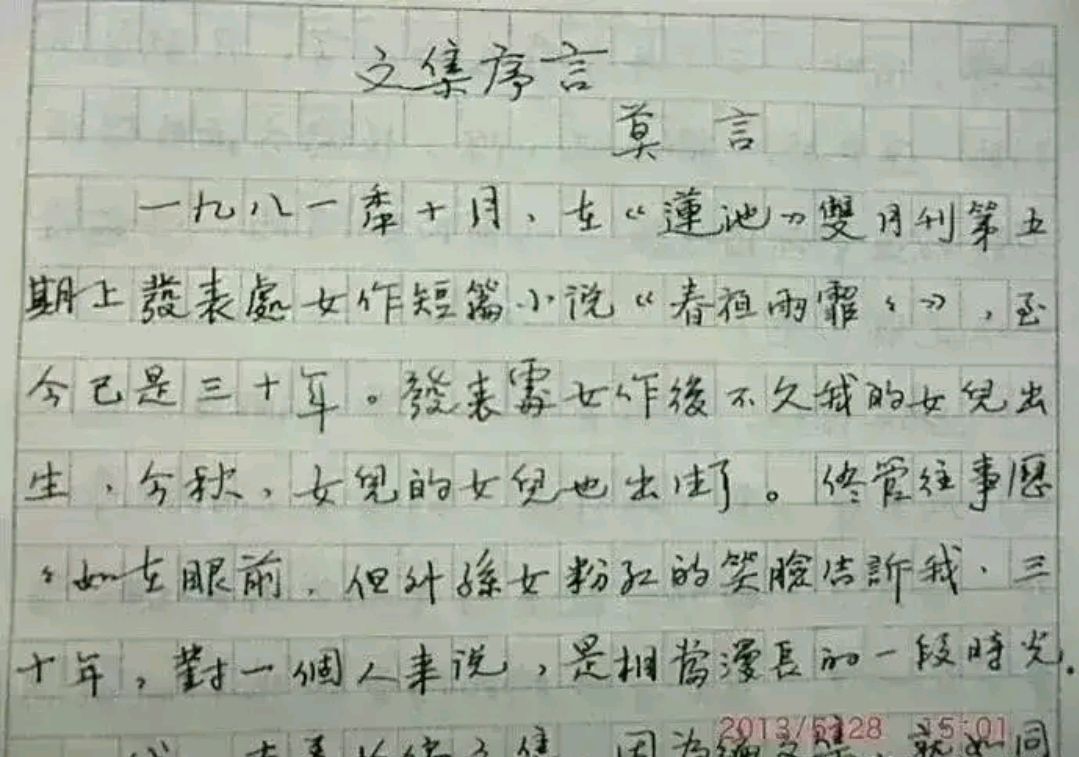 文集序言
莫言
一九八一年十月，在《蓮池》雙月刊第五
期上發表處女作短篇小说《春夜雨霏々》，至
今已是三十年。發表處女作後不久我的女兒出
生，今秋，女兒的女兒也出生了。儘管往事歷
々如在眼前，但外孫女粉红的笑臉告訴我，三
十年，對一個人来说，是相當漫長的一段時光。
文集 因為編文集，就如同
2013/5/28 15:01